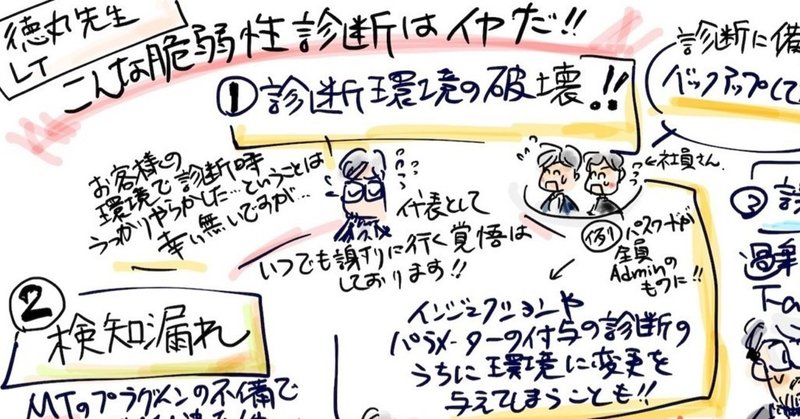 徳丸先生
LT
こんな脆弱性診断はイヤだ!!
① 診断環境の破壊!!
お客様の
環境で診断時
うっかりやらかした…ということは
幸い無いですが…
代表として
いつでも謝りに行く覚悟は
しております!!
←社員さん
例) パスワードが
全員
Adminの
ものに!!
インジェクションや
パラメーターの付与の診断の
うちに環境に変更を
与えてしまうことも!!
② 検知漏れ
MTのプラグインの不備で
診断に備
バックアップして
③